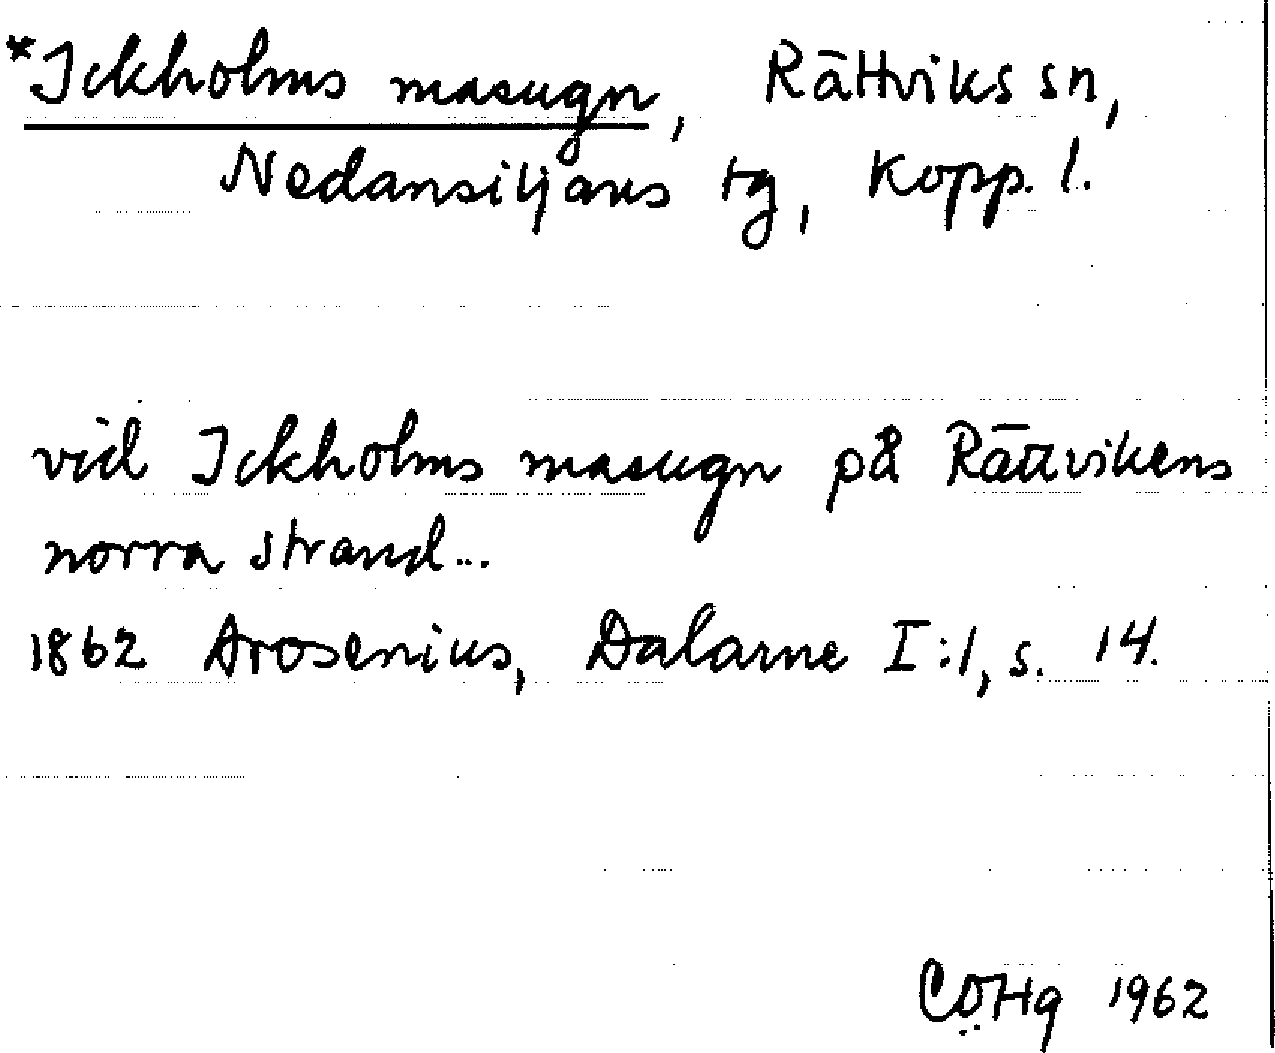 *Ickholms masugn, Rättviks sn,
Nedansiljans tg, Kopp. l.
vid Ickholms masugn på Rättvikens
norra strand...
1862 Arosenius, Dalarne I:1, s. 14.
CÖHg 1962